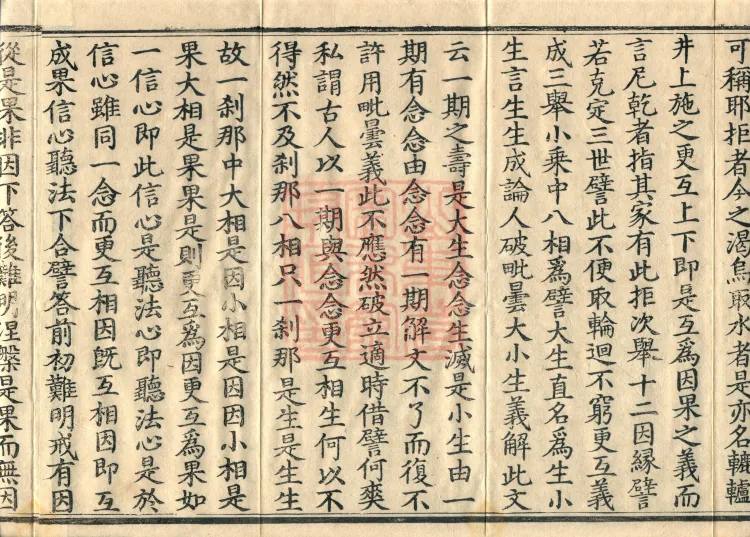 可稱耶拒者今之渴烏取水者是亦名轆轤
井上施之更互上下即是互爲因果之義而
言尼乾者指其家有此拒次舉十二因緣譬
若克定三世譬此不便取輪迴不窮更互義
成三舉小乘中八相爲譬大生直名爲生小
生言生生成論人破毗曇大小生義解此文
云一期之壽是大生念念生滅是小生由一
期有念念由念念有一期解文不了而復不
許用毗曇義此不應然破立適時借譬何爽
私謂古人以一期與念念更互相生何以不
得然不及刹那八相只一刹那是生是生生
故一刹那中大相是因小相是因因小相是
果大相是果果是則更互爲因更互爲果如
一信心即此信心是聽法心即聽法心是於
信心雖同一念而更互相因旣互相因即互
成果信心聽法下合譬答前初難明戒有因
從是果非因下答後難明涅槃是果而無因